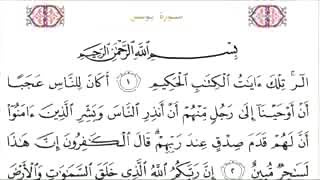 سورة يونس
بِسْمِ ٱللَّهِ ٱلرَّحْمَٰنِ ٱلرَّحِيمِ
الٓر تِلْكَ ءَايَٰتُ ٱلْكِتَٰبِ ٱلْحَكِيمِ ١ أَكَانَ لِلنَّاسِ عَجَبًا
أَنْ أَوْحَيْنَآ إِلَىٰ رَجُلٍ مِّنْهُمْ أَنْ أَنذِرِ ٱلنَّاسَ وَبَشِّرِ ٱلَّذِينَ ءَامَنُوٓا۟
أَنَّ لَهُمْ قَدَمَ صِدْقٍ عِندَ رَبِّهِمْ قَالَ ٱلْكَٰفِرُونَ إِنَّ هَٰذَا
لَسَٰحِرٌ مُّبِينٌ ٢ إِنَّ رَبَّكُمُ ٱللَّهُ ٱلَّذِى خَلَقَ ٱلسَّمَٰوَٰتِ وَٱلْأَرْضَ